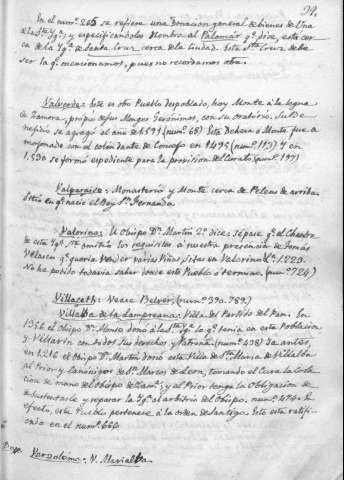 99.
En el num.º 215 se refiere una Donacion general de bienes de Una
a la Sta. Yg.ª; y especificandolos Nombra al Palomár q.e dice, esta cer
ca de la Yg.ª de Santa Cruz cerca de la Ciudad. Este Sta. Cruz debe
ser la q.e mencionamos, pues no recordamos otra.
Valverde: Este es otro Pueblo despoblado, hoy Monte á la legua
de Zamora, propio de los Monges Geronimos, con su oratorio. Su Be-
neficio se agregó el año de 1591 (num.º 68) Este Dehesa o Monte fue a
mojonado con el colindante de Concejo en 1495 (num.º 113) Y en
1,530 se formó expediente para la provision del Curato (num.º 197)
Valparaiso: Monasterio y Monte cerca de Peleas de arriba.
Sitio en q.e nació el Rey Sn. Fernando.
Valorina: El Obispo D.n Martin 2.º dice: sepase q.e el Chantre
de esta Ygl.ª omitió los requisitos á nuestra presencia de Tomás
Velasco q.e queria vender varias Viñas, sitas en Valorina 1.223.
No ha podido todavia saber donde este Pueblo ó termino. (num.º 724)
Villaceth: Vease Belver. (num.º 390. 789.)
Villalba de la Lampreana: Villa del Partido del Pan. En
1352 el Obispo D.n Alonso donó á la Sta. Yg.ª lo q.e tenia en esta Poblacion
y Villarin con todos sus derechos y Patron.to (num.º 438) Ya antes,
en 1,216 el Obispo D.n Martin donó esta Villa de Sta. Maria de Villalba
al Prior y Canonigos de Sn. Marcos de Leon, tomando el Cura la Cola
cion de mano del Obispo de Zam.ª; y el Prior tenga la Obligacion de
sustentarle y reparar la Yg.ª al arbitrio del Obispo. num.º 474. En
efecto, este Pueblo pertenece á la orden de Santiago. Esto esta ratifi
cado en el num.º 666
Varzolema: V. Marialba.